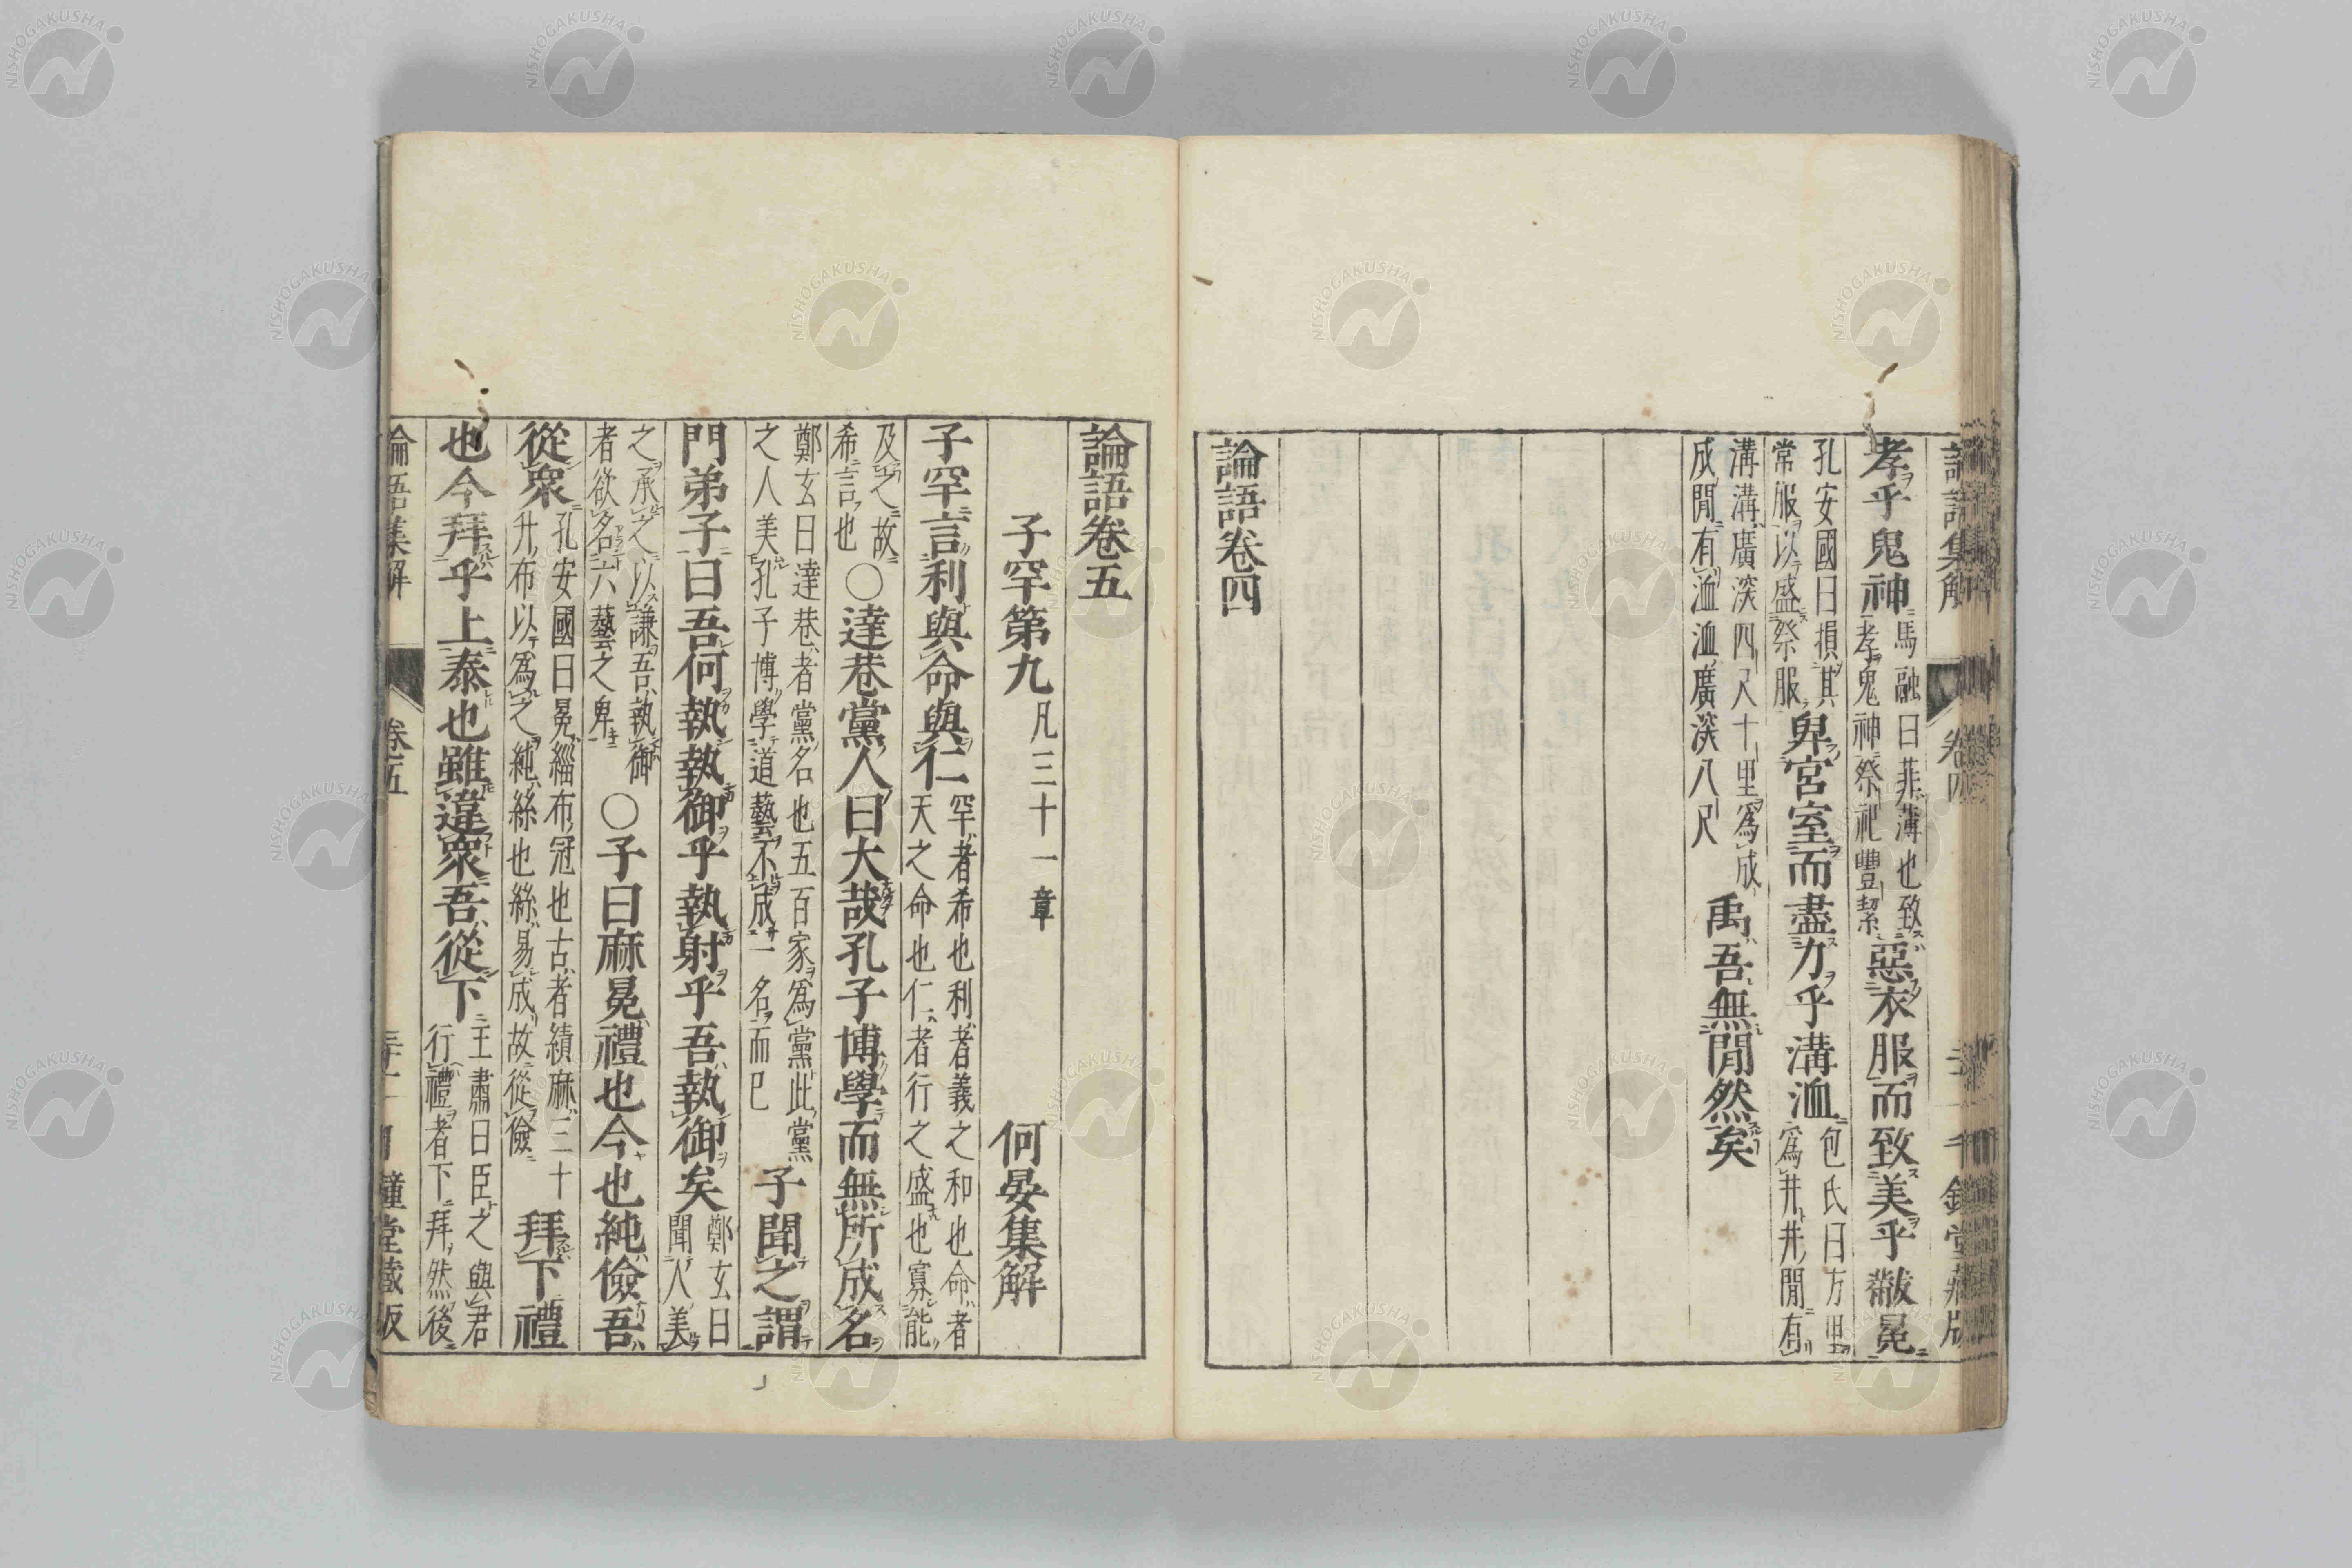 孝乎鬼神馬融曰菲薄也致孝鬼神祭祀豐絜惡衣服而致美乎黻冕
孔安國曰損其常服以盛祭服卑宮室而盡力乎溝洫包氏曰方里爲井井閒有
溝溝廣深四尺十里爲成成閒有洫洫廣深八尺禹吾無閒然矣
論語卷四
論語卷五
子罕第九凡三十一章 何晏集解
子罕言利與命與仁罕者希也利者義之和也命者天之命也仁者行之盛也寡能
及之故希言也〇達巷黨人曰大哉孔子博學而無所成名
鄭玄曰達巷者黨名也五百家爲黨此黨之人美孔子博學道藝不成一名而已子聞之謂
門弟子曰吾何執執御乎執射乎吾執御矣鄭玄曰聞人美
之承之以謙吾執御者欲名六藝之卑〇子曰麻冕禮也今也純儉吾
從衆孔安國曰冕緇布冠也古者績麻三十升布以爲之純絲也絲易成故從儉拜下禮
也今拜乎上泰也雖違衆吾從下王肅曰臣之與君行禮者下拜然後
論語集解 卷五 千鐘堂藏版
NISHOGAKUSHA